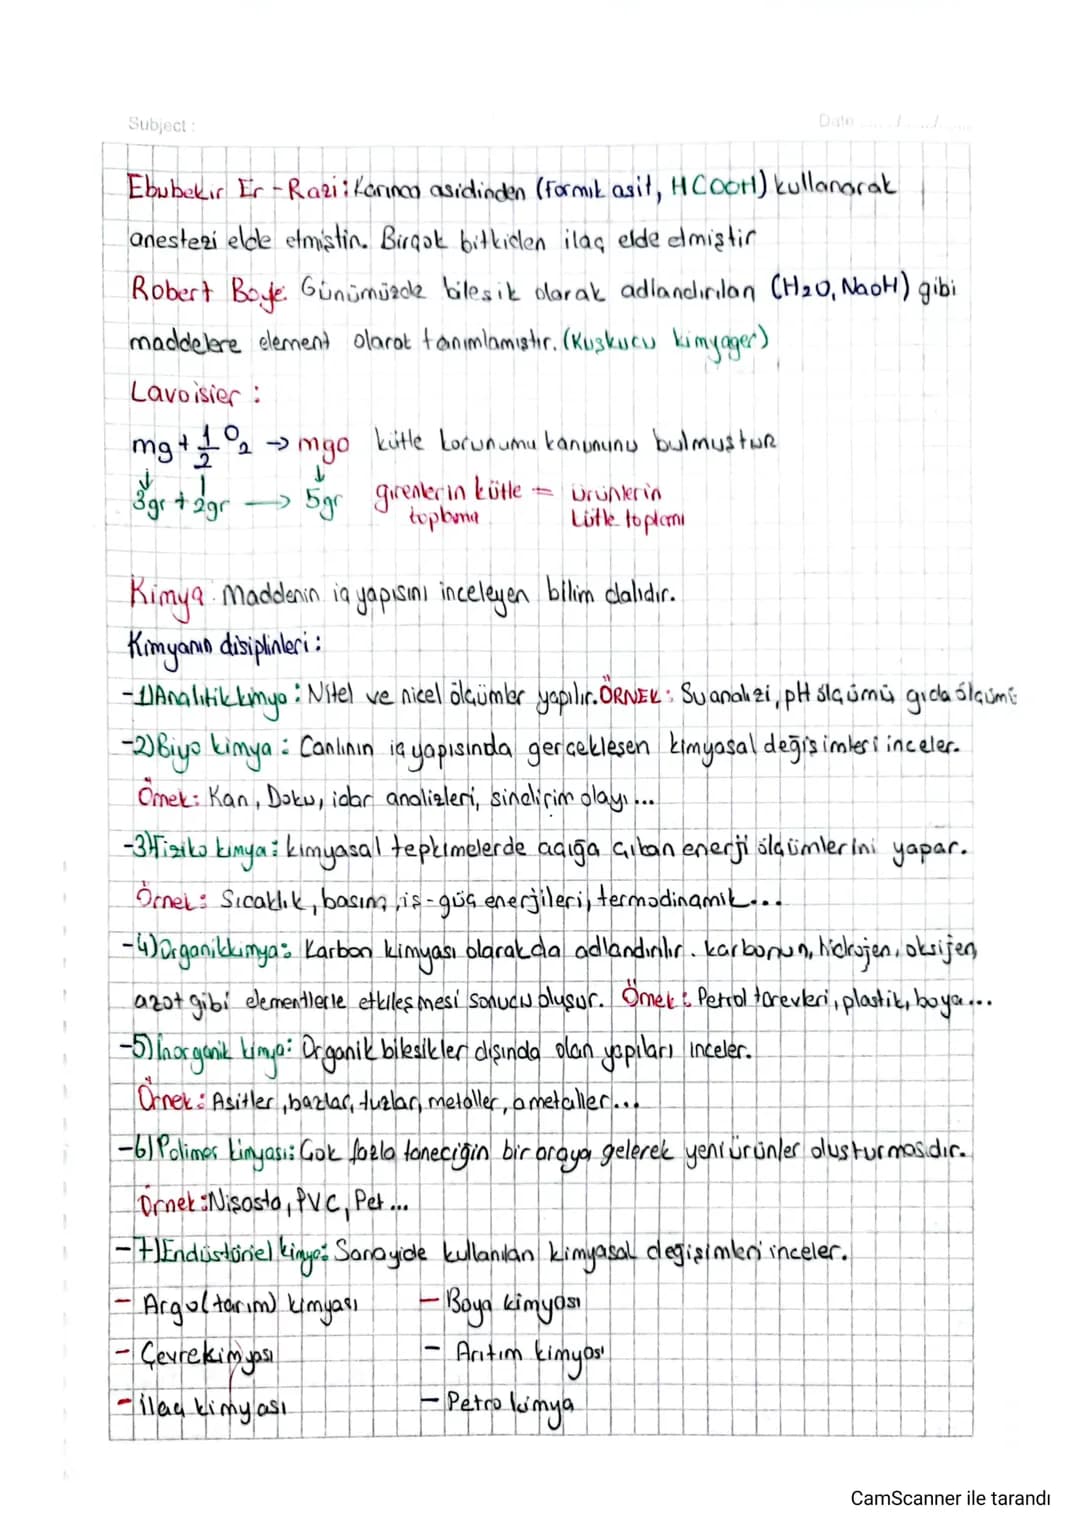 Subject :
Date ...... / ...... / ......
Ebubekir Er - Razi : Karınca asidinden (Formik asit, HCOOH) kullanarak
anestezi elde etmiştin. Birçok bitkiden ilaç elde etmiştir
Robert Boyle: Günümüzde bileşik olarak adlandırılan (H2O, NaOH) gibi
maddelere element olarak tanımlamıştır. (Kuşkucu kimyager)
Lavoisier :
mg + 1/2 O2 → mgo kütle korunumu kanununu bulmuştur
3gr + 2gr → 5gr girenlerin kütle = ürünlerin
toplamı kütle toplamı
Kimya: Maddenin iç yapısını inceleyen bilim dalıdır.
Kimyanın disiplinleri :
-1) Analitik kimya : Nitel ve nicel ölçümler yapılır. ÖRNEK : Su analizi, pH ölçümü gıda ölçümü
-2) Biyo kimya : Canlının iç yapısında gerçekleşen kimyasal değişimleri inceler.
Örnek : Kan, Doku, idar analizleri, sindirim olayı ...
-3) Fiziko kimya : kimyasal tepkimelerde açığa çıkan enerji ölçümlerini yapar.
Örnek : Sıcaklık, basınç, iş - güç enerjileri, termodinamik...
-4) Organik kimya : Karbon kimyası olarak da adlandırılır. karbonun, hidrojen, oksijen,
azot gibi elementlerle etkileşmesi sonucu oluşur. Örnek : Petrol türevleri, plastik, boya ...
-5) İnorganik kimya : Organik bileşikler dışında olan yapıları inceler.
Örnek : Asitler, bazlar, tuzlar, metaller, ametaller...
-6) Polimer kimyası : Çok fazla taneciğin bir araya gelerek yeni ürünler oluşturmasıdır.
Örnek : Nişasta, PVC, Pet ...
-7) Endüstüriel kimya : Sanayide kullanılan kimyasal değişimleri inceler.
- Argo (tarım) kimyası - Boya kimyası
- Çevre kimyası - Arıtım kimyası
- ilaç kimyası - Petro kimya
CamScanner ile tarandı